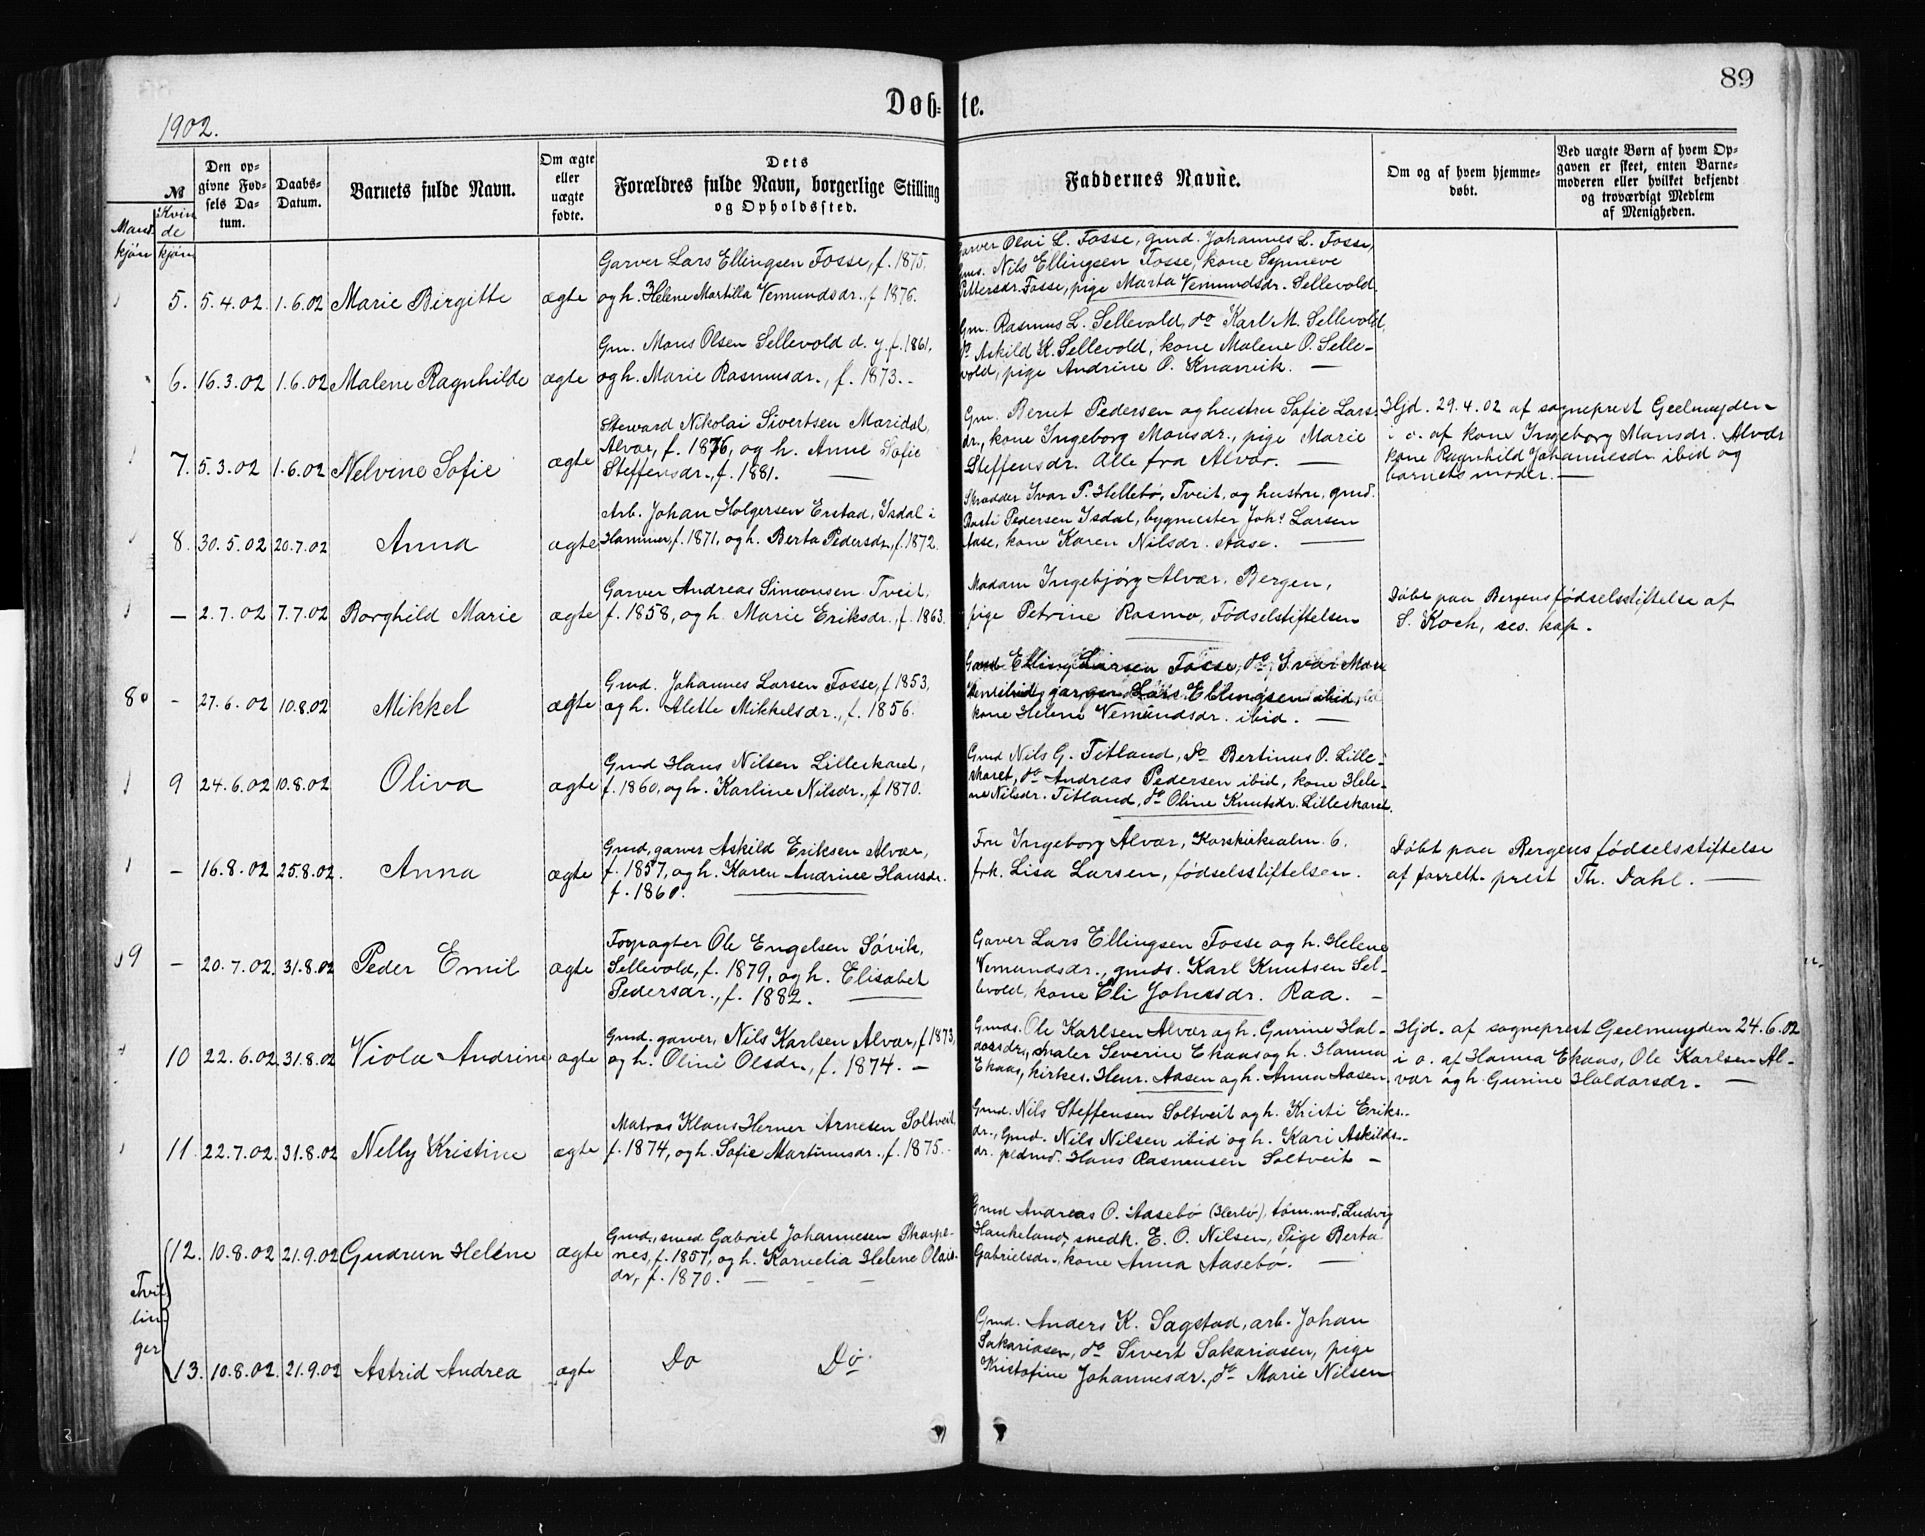 89
Døb-te.
1902.
№
Mand
kjøn
Kvin
de
kjøn
Den op-
givne Fød-
sels Da-
tum.
Daabs-
Datum.
Barnets fulde Navn.
Om ægte
eller
uægte
fødte.
Dets
Forældres fulde Navn, borgerlige Stilling
og Opholdssted.
Faddernes Navne.
Om og af hvem hjemme-
døbt.
Ved uægte Børn af hvem Op-
gaven er skeet, enten Barne-
moderen eller hvilket bekjendt
og troværdigt Medlem
af Menigheden.
5. 5.4.02 1.6.02 Marie Birgitte ægte
Garver Lars Ellingsen Fosse, f. 1875,
og h. Helene Martilla Vemundsdr., f. 1876.
Garver Olai L. Fosse, gmd. Johannes L. Fosse,
gms. Nils Ellingsen Fosse, kone Synneve
Pettersdr. Fosse, pige Marta Vemundsdr. Sellevold
6. 16.3.02 1.6.02 Malene Ragnhilde ægte
Gm. Mons Olsen Sellevold d. y. f. 1861,
og h. Marie Rasmusdr., f. 1873.
Gm. Rasmus L. Sellevold, do Karl M. Sellevold,
Askild K. Sellevold, kone Malene O. Selle-
vold, pige Andrine O. Knarvik. —
7. 5.3.02 1.6.02 Nelvine Sofie ægte
Steward Nikolai Sivertsen Maridal,
Alvær, f. 1876, og h. Anne Sofie
Steffensdr., f. 1881. —
Gm. Bernt Pedersen og hustru Sofie Lars-
dr., kone Ingeborg Monsdr., pige Marie
Steffensdr. Alle fra Alvær. —
Hjd. 29.4.02 af sogneprest Geelmuyden
i o. af kone Ingeborg Monsdr. Alvær
kone Ragnhild Johannesdr ibid og
barnets moder. —
8. 30.5.02 20.7.02 Anna ægte
Arb. Johan Holgersen Erstad, Isdal i
Hammer, f. 1871, og h. Berta Pedersdr., f. 1872.
Skrædder Ivar P. Hellebø, Tveit, og hustru, gmd.
Rasti Pedersen Isdal, bygmester Johs Larsen
Aase, kone Karen Nilsdr. Aase. —
— 2.7.02 7.7.02 Borghild Marie ægte
Garver Andreas Simonsen Tveit,
f. 1858, og h. Marie Eriksdr., f. 1863.
Madam Ingebjørg Alvær, Bergen,
pige Petrine Rasmo, Fødselstiftelsen
Døbt paa Bergens fødselsstiftelse af
S. Koch, res. kap.
8 - 27.6.02 10.8.02 Mikkel ægte
Gmd. Johannes Larsen Fosse, f. 1853,
og h. Alette Mikkelsdr., f. 1856.
Gmd Elling Larsen Fosse, do Ivar Mon
garver Lars Ellingsen ibid,
kone Helene Vemundsdr. ibid. —
9 24.6.02 10.8.02 Oliva ægte
Gmd Hans Nilsen Lilleskaret,
f. 1860, og h. Karline Nilsdr., f 1870.
Gmd Nils G. Titland, do Bertinus O. Lille-
skaret, do Andreas Pedersen ibid, kone Hele-
ne Nilsdr. Titland, do Oline Knutsdr. Lilleskaret.
— 16.8.02 25.8.02. Anna ægte
Gmd, garver Askild Eriksen Alvær,
f. 1857, og h. Karen Andrine Hansdr.
f. 1860.
Fru Ingeborg Alvær, Korskirkealm. 6.
frk. Lisa Larsen, fødselsstiftelsen.
Døbt paa Bergens fødselsstiftelse
af forrett. prest Th. Dahl. —
9 — 20.7.02. 31.8.02 Peder Emil ægte
Forpagter Ole Engelsen Søvik,
Sellevold, f. 1879, og h. Elisabet
Pedersdr., f. 1882. —
Gaver Lars Ellingsen Fosse og h. Helene
Vemundsdr., gmds. Karl Knutsen Sel-
levold, kone Eli Johnsdr. Raa. —
10 22.6.02. 31.8.02 Viola Andrine ægte
Gmd. garver, Nils Karlsen Alvær, f 1873,
og h. Oline Olsdr., f. 1874. —
Gmds. Ole Karlsen Alvær og h. Gurine Hal-
dorsdr., maler Severin Ekaas og h. Hanna
Ekaas, kirkes. Henr. Aasen og h. Anna Aasen.
Hjd. af sogneprest Geelmuyden 24.6.02
i o. af Hanna Ekaas, Ole Karlsen Al-
vær og h. Gurine Haldorsdr. —
11 22.7.02. 31.8.02 Nelly Kristine ægte
Matros Klaus Herner Arnesen Soltveit,
f. 1874, og h. Sofie Martinusdr., f. 1875.
Gmd. Nils Steffensen Soltveit og h. Kristi Eriks-
dr., Gmd. Nils Nilsen ibid og h. Kari Askilds-
dr. pldmd. Hans Rasmussen Soltveit —
Tvil
lin-
ger
12. 10.8.02 21.9.02 Gudrun Heléne ægte
Gmd., smed Gabriel Johannesen Skarpe-
nes, f. 1857, og h. Kornelia Helene Olais-
dr, f. 1870. — — —
Gmd Andreas O. Aasebø (Herlø), tøm.md. Ludvig
Haukeland, snedk. E. O. Nilsen, Pige Berta
Gabrielsdr., kone Anna Aasebø. —
13. 10.8.02. 21.9.02 Astrid Andrea ægte
Do Do.
Gmd. Anders K. Sagstad, arb. Johan
Sakariasen, do Sivert Sakariasen, pige
Kristofine Johannesdr., do Marie Nilsen